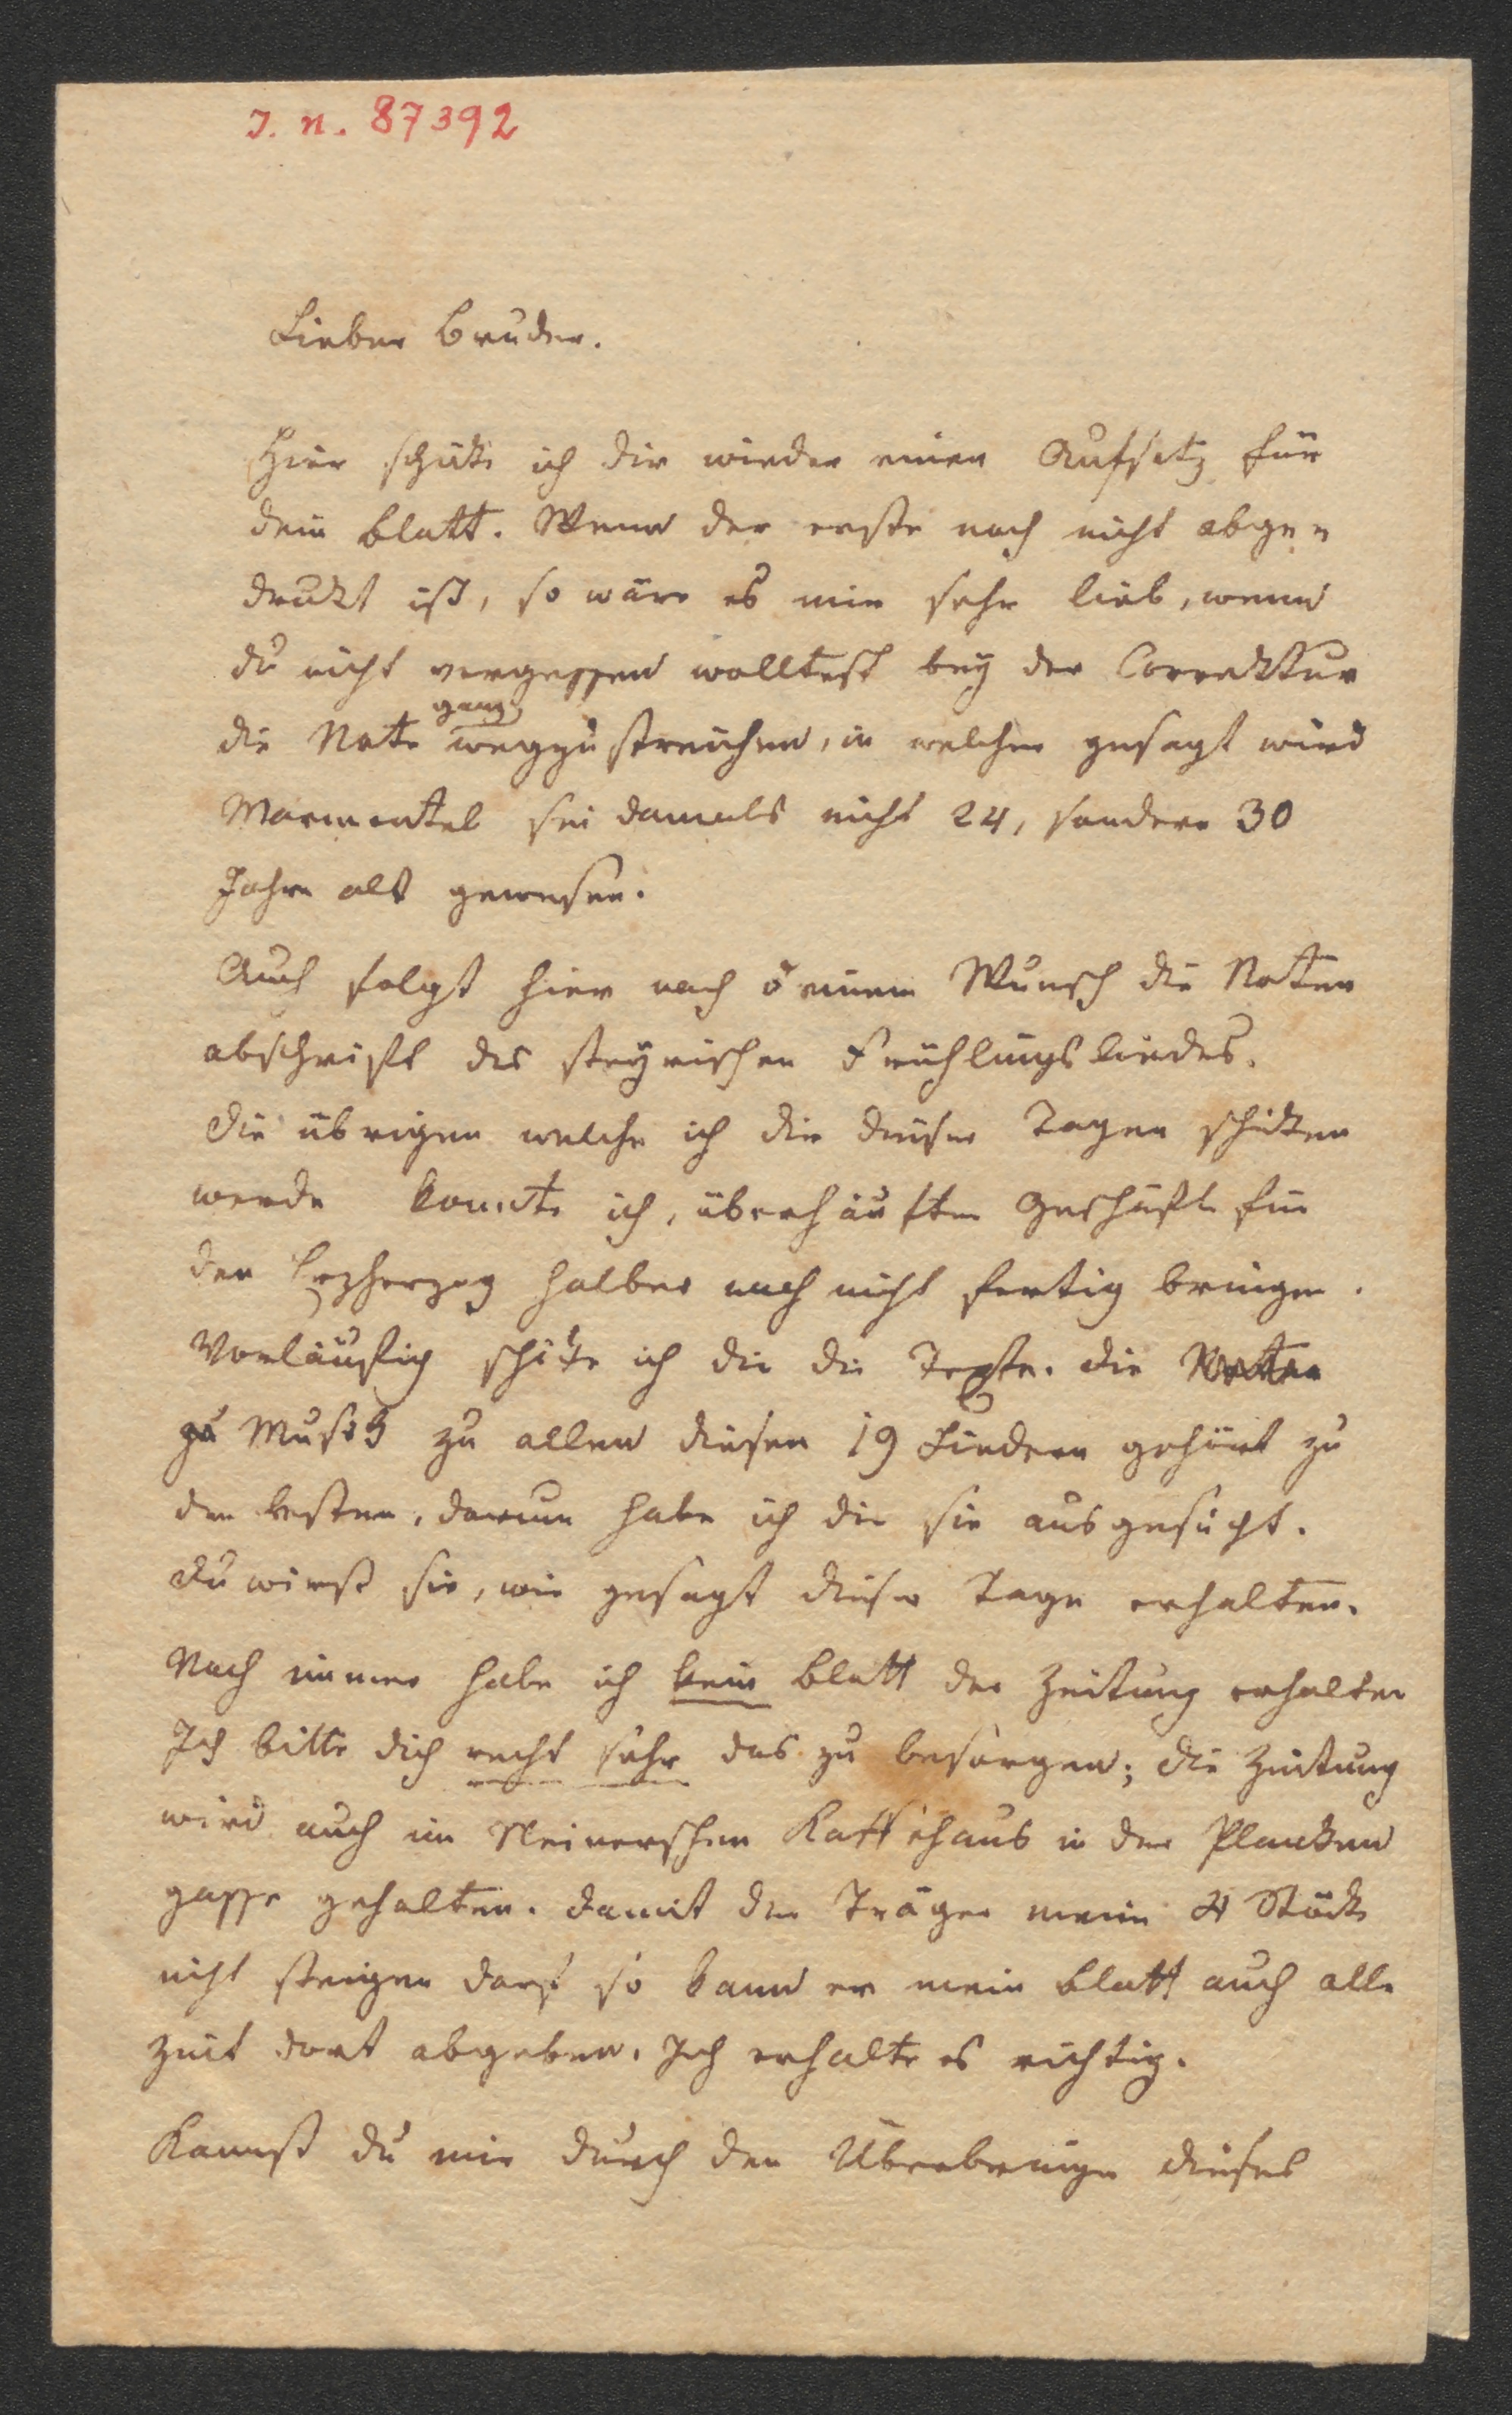 J. N. 87392
Lieber Bruder.
Hier schicke ich dir wieder einen Aufsatz für
dein Blatt. Wenn der erste noch nicht abge-
druckt ist, so wäre es mir sehr lieb, wenn
du nicht vergessen wolltest bey der Correktur
ganz
die Note wegzustreichen, in welcher gesagt wird
Marmontel sei damals nicht 24, sondern 30
Jahre alt gewesen.
Auch folgt hier nach deinem Wunsch die Noten
abschrift des steyrischen Frühlingsliedes.
Die übrigen welche ich dir dieser Tagen schicken
werde konnte ich, überhäufter Geschäfte für
den Erzherzog halber noch nicht fertig bringen.
Vorläufig schicke ich dir die Texte. Die Noten
zu Musik zu allen diesen 19 Liedern gehört zu
den besten, darum habe ich dir sie ausgesucht.
Du wirst sie, wie gesagt dieser Tage erhalten.
Noch immer habe ich kein Blatt der Zeitung erhalten
Ich bitte dich recht sehr das zu besorgen; die Zeitung
wird auch im Neinerschen Kaffehaus in der Planken
gasse gehalten. Damit der Träger meine 4 Stöcke
nicht steigen darf so kann er mein Blatt auch alle
zeit dort abgeben. Ich erhalte es richtig.
Kannst du mir durch den Überbringer dieses